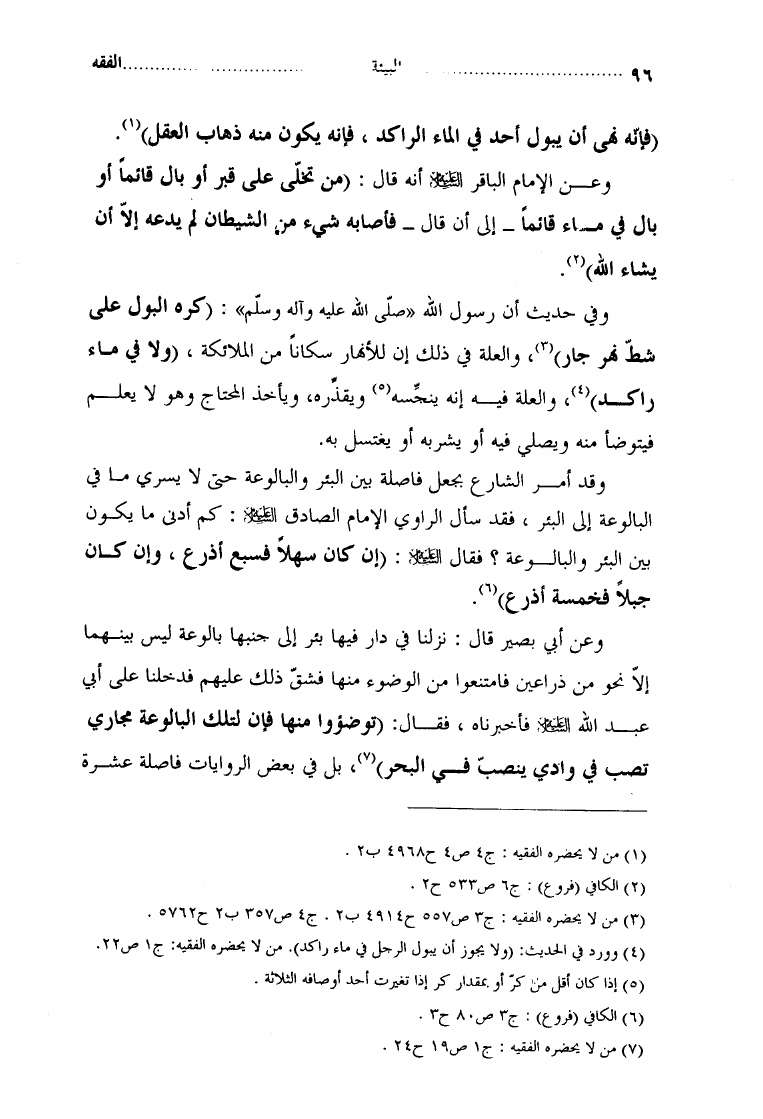 ٩٦ ............ البيئة ............ الفقه
(فإنّه نهى أن يبول أحد في الماء الراكد ، فإنه يكون منه ذهاب العقل)(١).
وعن الإمام الباقر عليه السلام أنه قال : (من تخلّى على قبر أو بال قائماً أو
بال في ماء قائماً ــ إلى أن قال ــ فأصابه شيء من الشيطان لم يدعه إلاّ أن
يشاء الله)(٢).
وفي حديث أن رسول الله «صلّى الله عليه وآله وسلّم» : (كره البول على
شطّ نهر جار)(٣)، والعلة في ذلك إن للأنهار سكاناً من الملائكة ، (ولا في ماء
راكد)(٤)، والعلة فيه إنه ينجّسه(٥) ويقذّره، ويأخذ المحتاج وهو لا يعلم
فيتوضأ منه ويصلي فيه أو يشربه أو يغتسل به.
وقد أمر الشارع بجعل فاصلة بين البئر والبالوعة حتى لا يسري ما في
البالوعة إلى البئر ، فقد سأل الراوي الإمام الصادق عليه السلام : كم أدنى ما يكون
بين البئر والبالوعة ؟ فقال عليه السلام : (إن كان سهلاً فسبع أذرع ، وإن كان
جبلاً فخمسة أذرع)(٦).
وعن أبي بصير قال : نزلنا في دار فيها بئر إلى جنبها بالوعة ليس بينهما
إلاّ نحو من ذراعين فامتنعوا من الوضوء منها فشقّ ذلك عليهم فدخلنا على أبي
عبد الله عليه السلام فأخبرناه ، فقال: (توضؤوا منها فإن لتلك البالوعة مجاري
تصب في وادي ينصبّ في البحر)(٧)، بل في بعض الروايات فاصلة عشرة
(١) من لا يحضره الفقيه : ج٤ ص٤ ح٤٩٦٨ ب٢ .
(٢) الكافي (فروع) : ج٦ ص٥٣٣ ح٢ .
(٣) من لا يحضره الفقيه : ج٣ ص٥٥٧ ح٤٩١٤ ب٢ . ج٤ ص٣٥٧ ب٢ ح٥٧٦٢ .
(٤) وورد في الحديث: (ولا يجوز أن يبول الرجل في ماء راكد). من لا يحضره الفقيه: ج١ ص٢٢.
(٥) إذا كان أقل من كرّ أو بمقدار كر إذا تغيرت أحد أوصافه الثلاثة .
(٦) الكافي (فروع) : ج٣ ص٨٠ ح٣ .
(٧) من لا يحضره الفقيه : ج١ ص١٩ ح٢٤ .